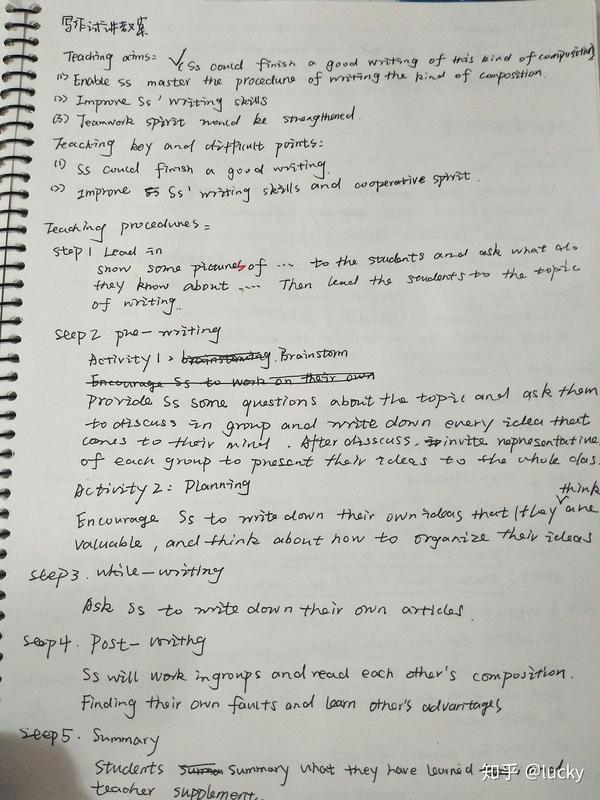 写作试讲教案
Teaching aims: √ Ss could finish a good writing of this kind of composition
(1) Enable Ss master the procedure of writing the kind of composition.
(2) Improve Ss' writing skills
(3) Teamwork spirit would be strengthened.
Teaching key and difficult points:
(1) Ss could finish a good writing.
(2) Improve Ss' writing skills and cooperative spirit.
Teaching procedures:
Step 1 Lead in
show some pictures of ... to the students and ask what do
they know about .... Then lead the students to the topic
of writing..
Step 2 pre-writing
Activity 1: brainstorming. Brainstorm
Encourage Ss to work on their own
Provide Ss some questions about the topic and ask them
to discuss in group and write down every idea that
comes to their mind. After disscuss, invite representative
of each group to present their ideas to the whole clas
Activity 2: Planning
think
Encourage Ss to write down their own ideas that they are
valuable, and think about how to organize their ideas
Step 3. while-writing
Ask Ss to write down their own articles.
Step 4. Post-writng
Ss will work in groups and read each other's composition.
Finding their own faults and learn other's advantages
Step 5. Summary
Students summary what they have learned and
teacher supplement..
知乎 @lucky